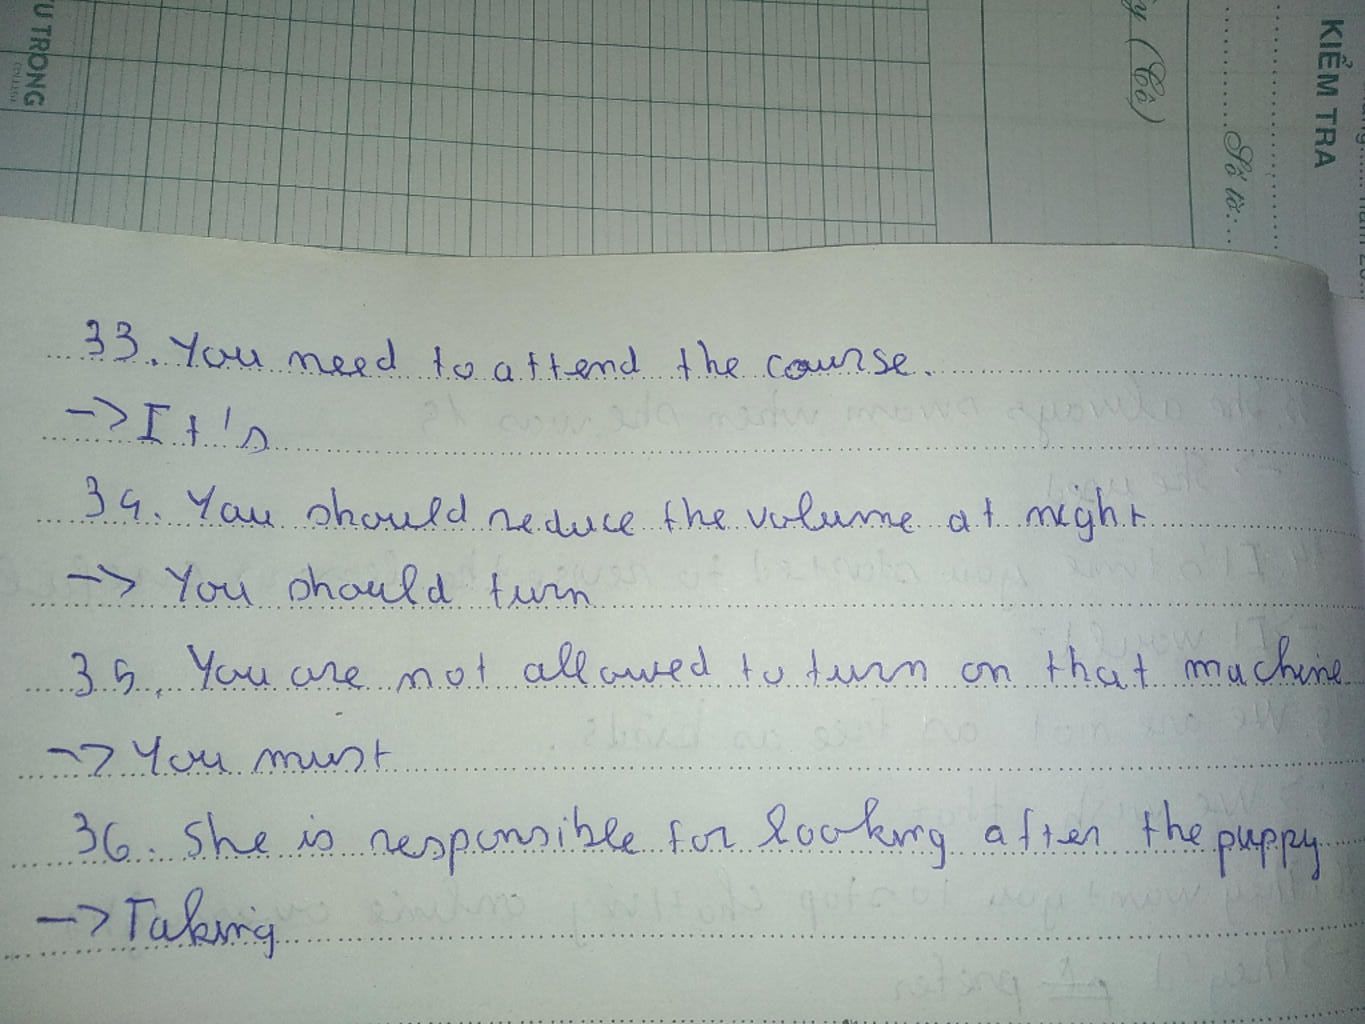 U TRỌNG
KIỂM TRA
y (Cô)
Số tờ:
33. You need to attend the course.
-> It's
34. You should reduce the volume at night
-> You should turn
35. You are not allowed to turn on that machine
-> You must
36. She is responsible for looking after the puppy
-> Taking